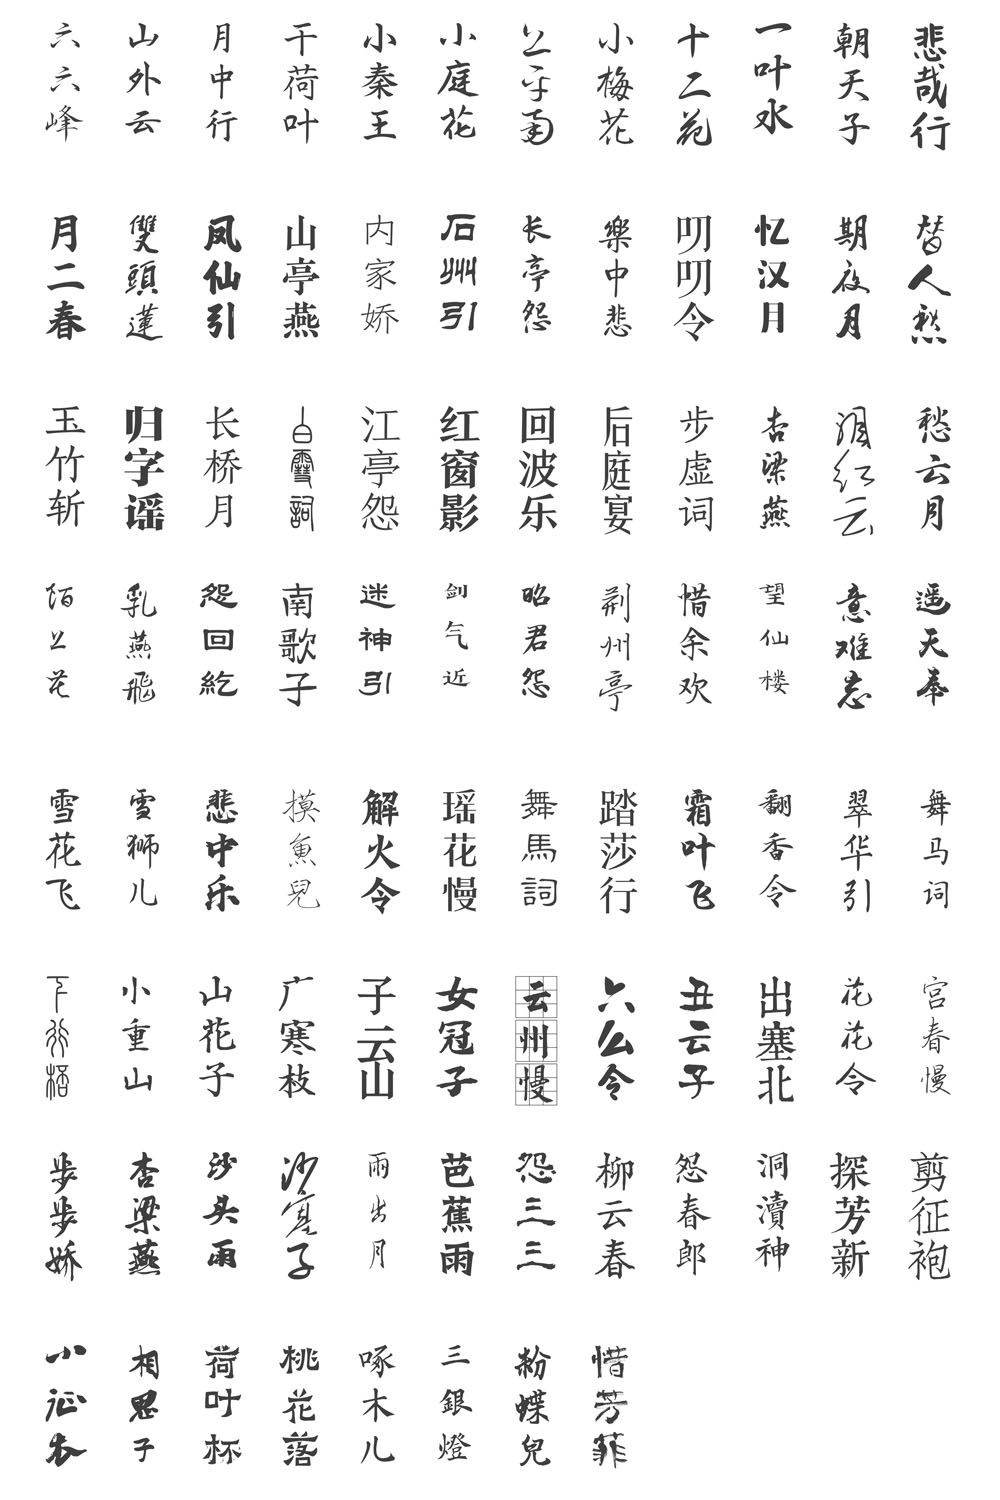 六六峰
山外云
月中行
干荷叶
小秦王
小庭花
上平南
小梅花
十二花
一叶水
朝天子
悲哉行
月二春
雙頭蓮
凤仙引
山亭燕
内家娇
石州引
长亭怨
樂中悲
叨叨令
忆汉月
期夜月
替人愁
玉竹斩
归字谣
长桥月
白雪詞
江亭怨
红窗影
回波乐
后庭宴
步虚词
杏梁燕
泪红云
愁云月
陌上花
乳燕飛
怨回紇
南歌子
迷神引
剑气近
昭君怨
荆州亭
惜余欢
望仙楼
意难忘
遥天奉
雪花飞
雪狮儿
悲中乐
摸魚兒
解火令
瑶花慢
舞馬詞
踏莎行
霜叶飞
翻香令
翠华引
舞马词
小重山
山花子
广寒枝
子云山
女冠子
云州慢
六么令
丑云子
出塞北
花花令
宫春慢
步步娇
杏梁燕
沙头雨
沙塞子
雨出月
芭蕉雨
怨三三
柳云春
怨春郎
洞瀆神
探芳新
剪征袍
小征衣
相思子
荷叶杯
桃花落
啄木儿
三銀燈
粉蝶兒
惜芳菲